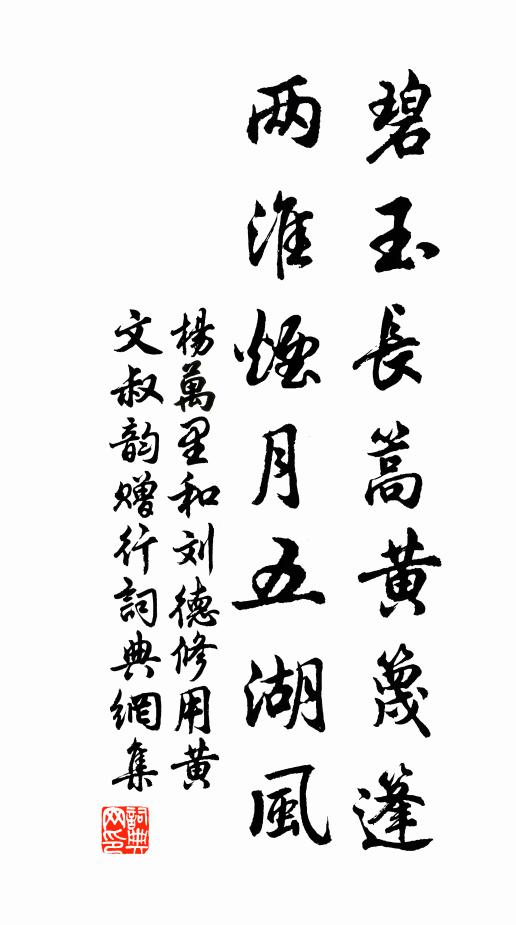 碧玉長篙黄篾篷
两淮煙月五湖風
楊萬里和刘德修用黄
文叔韵贈行詞典網集
詞典
网印